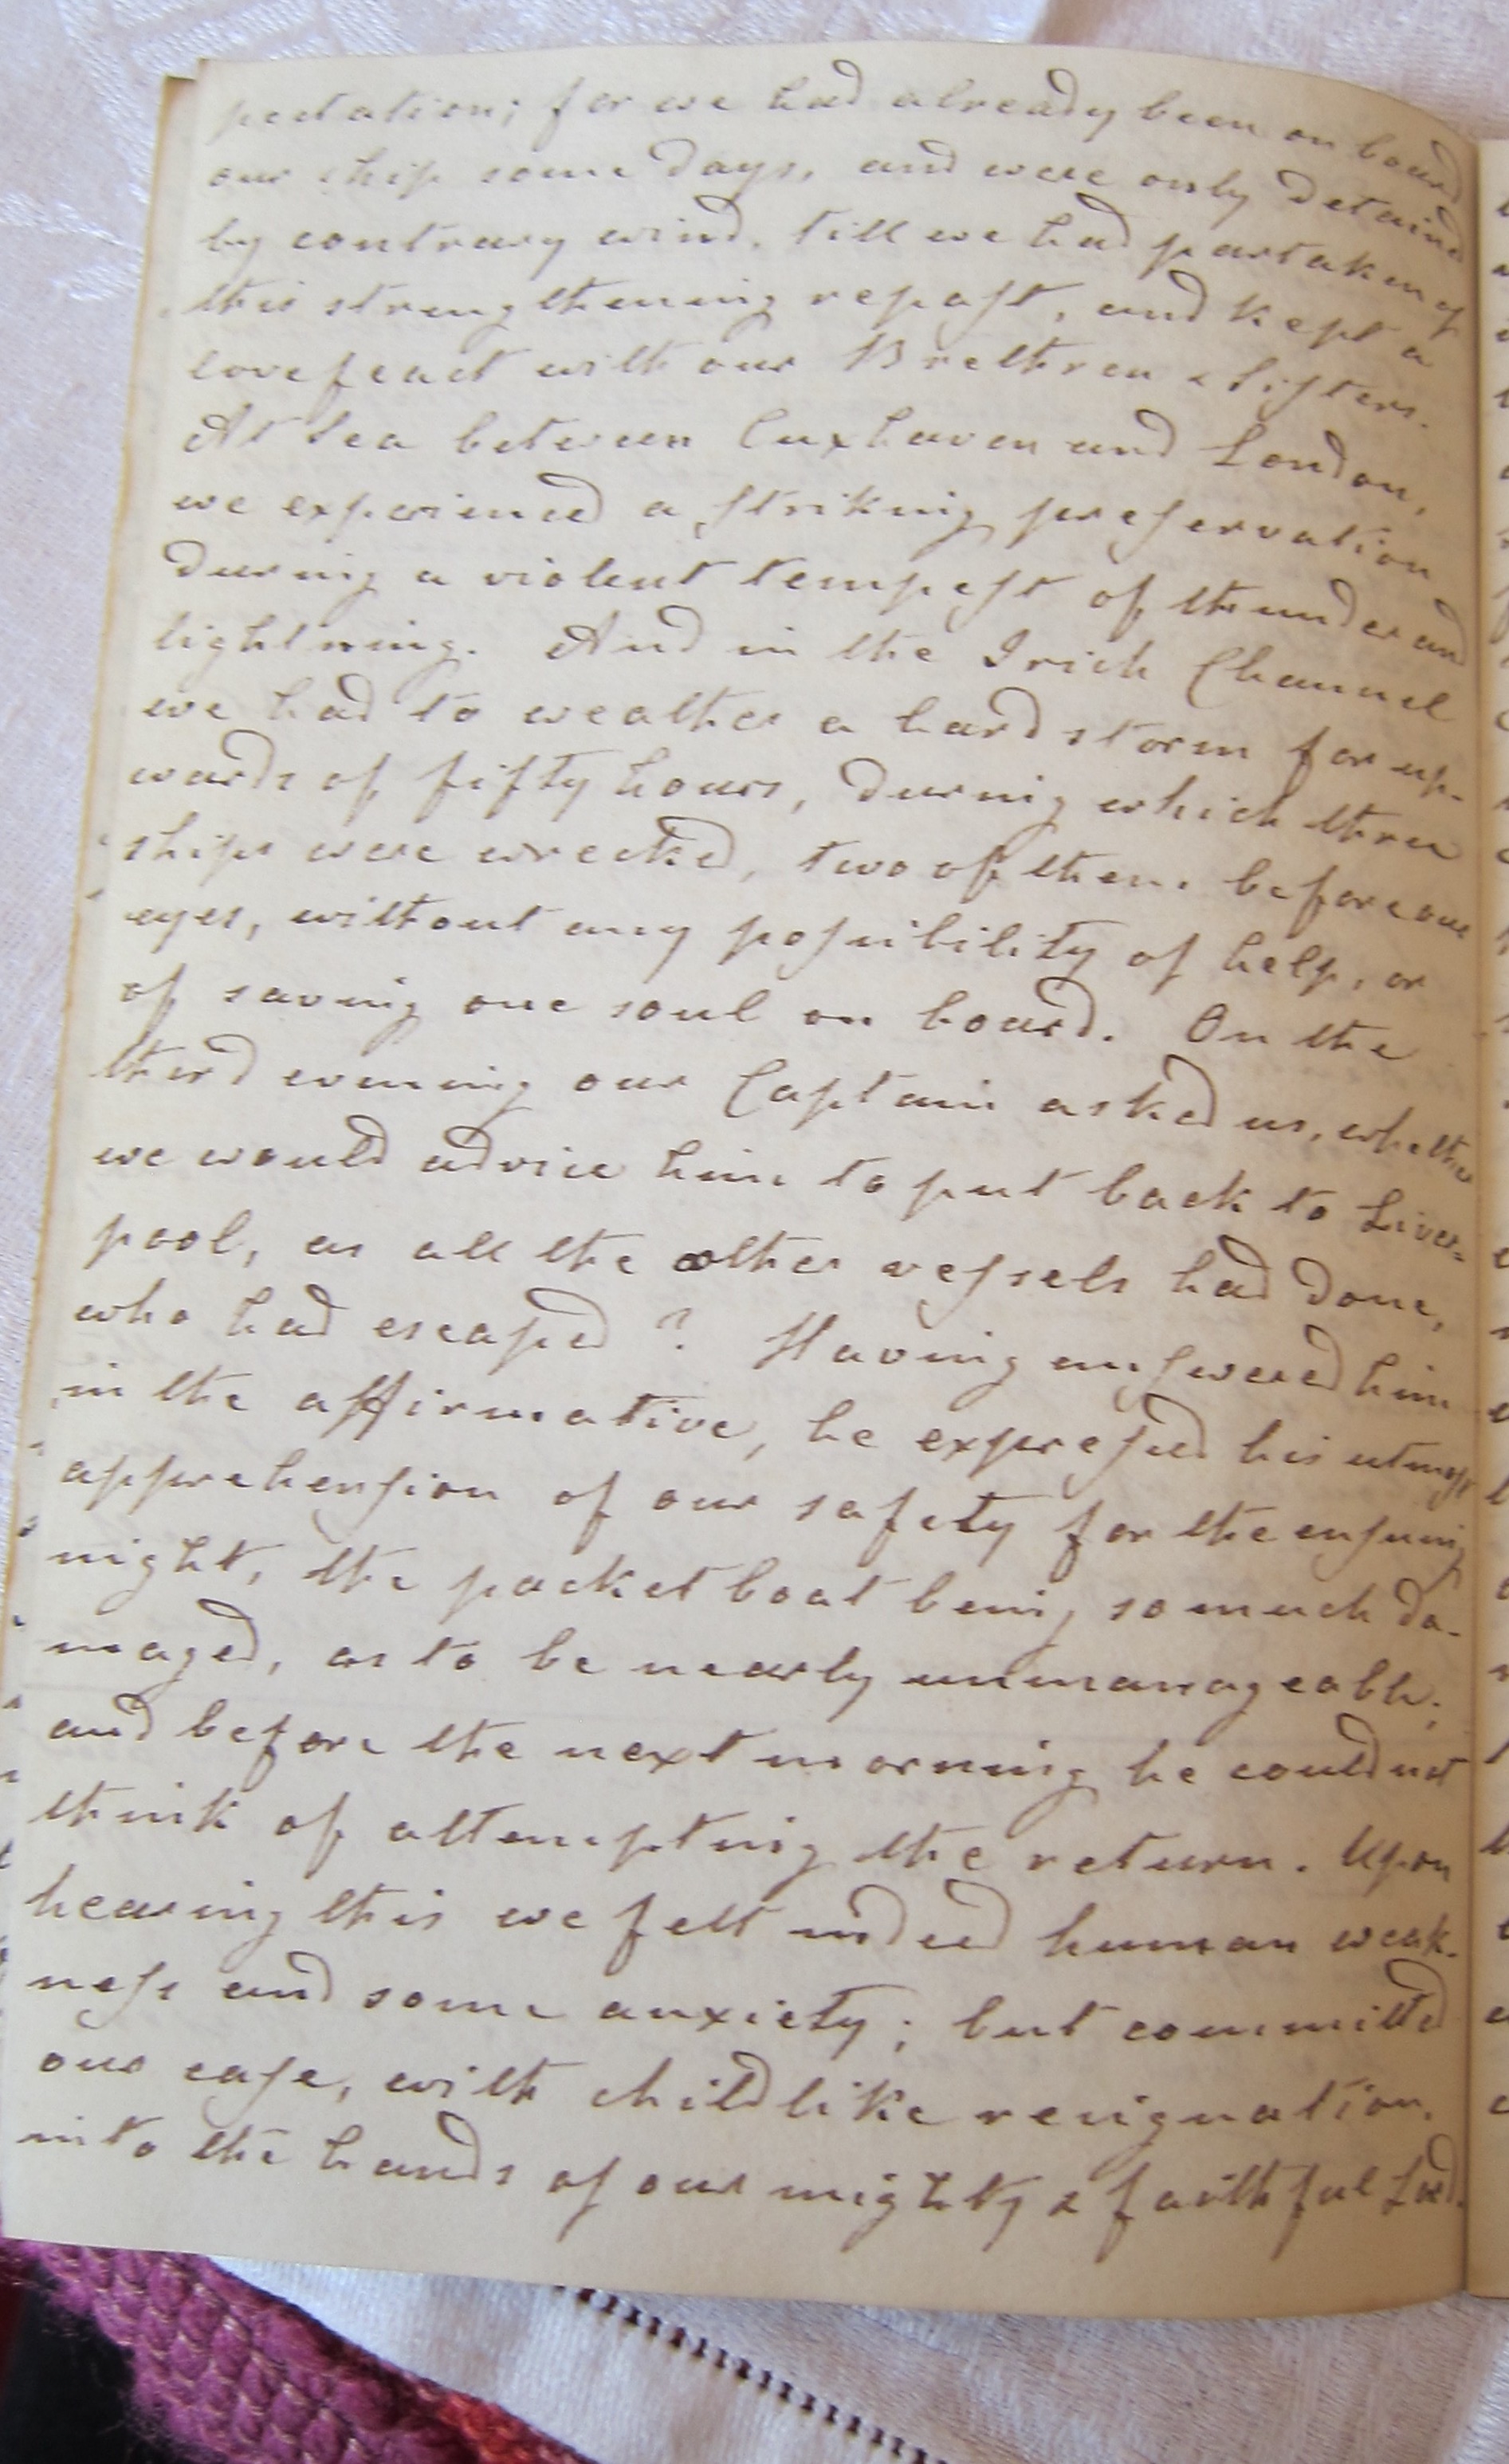 pectation; for we had already been on board
our ship some days, and were only detaind
by contrary wind, till we had partaken of
this strengthening repaſt, and kept a
lovefeast with our Brethren & Siſters.
At Sea between Cuxhaven and London,
we experienced a ſtriking preſervation
during a violent tempeſt of thunder and
lightning. And in the Irish Channel
we had to weather a hard storm for up-
wards of fifty hours, during which three
ships were wrecked, two of them before our
eyes, without any poſsibility of help, or
of saving one soul on board. On the
third evening our Captain asked us, whether
we would advice him to put back to Liver=
pool, as all the other veſsels had done,
who had escaped? Having anſwered him
in the affirmative, he expreſsed his utmoſt
apprehenſion of our safety for the enſuing
night, the packet boat being so much da-
maged, as to be nearly unmanageable;
and before the next morning he could not
think of attempting the return. Upon
hearing this we felt indeed human weak-
neſs and some anxiety; but committed
our caſe, with childlike resignation,
into the hands of our mighty & faithful Lord.